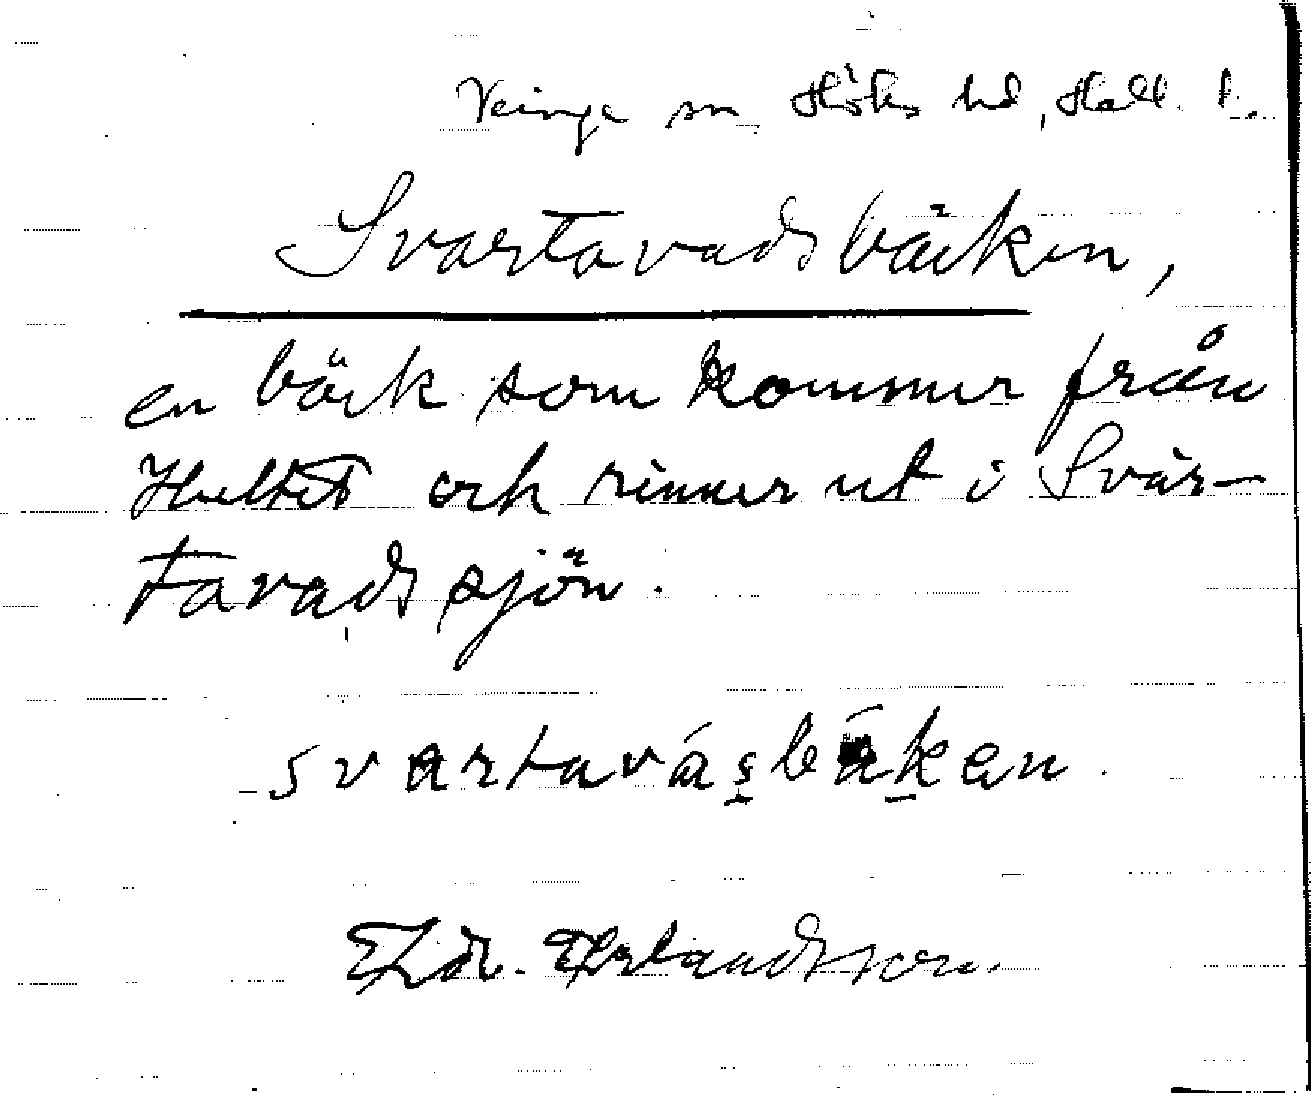 Veinge sn Höks hd, Hall. l.
Svartavadsbäcken,
en bäck som kommer från
Hultet och rinner ut i Svar-
tavadssjön.
svartavásbäkan
Erlandsson.